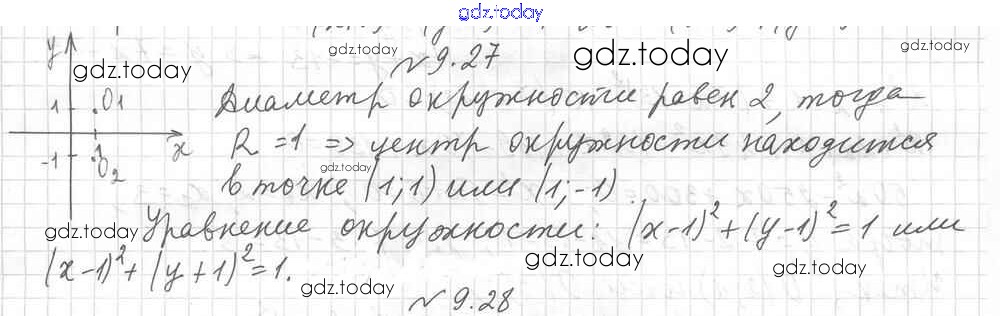 gdz.today
gdz.today
gdz.today
gdz.today
N 9.27
y
gdz.today
1
O1
Диаметр окружности равен 2, тогда
x
-1
O2
R = 1 => центр окружности находится
gdz.today
в точке (1; 1) или (1; -1)
gdz.today
Уравнение окружности: (x-1)²+(y-1)²=1 или
(x-1)²+(y+1)²=1.
gdz.today
gdz.today
gdz.today
N 9.28